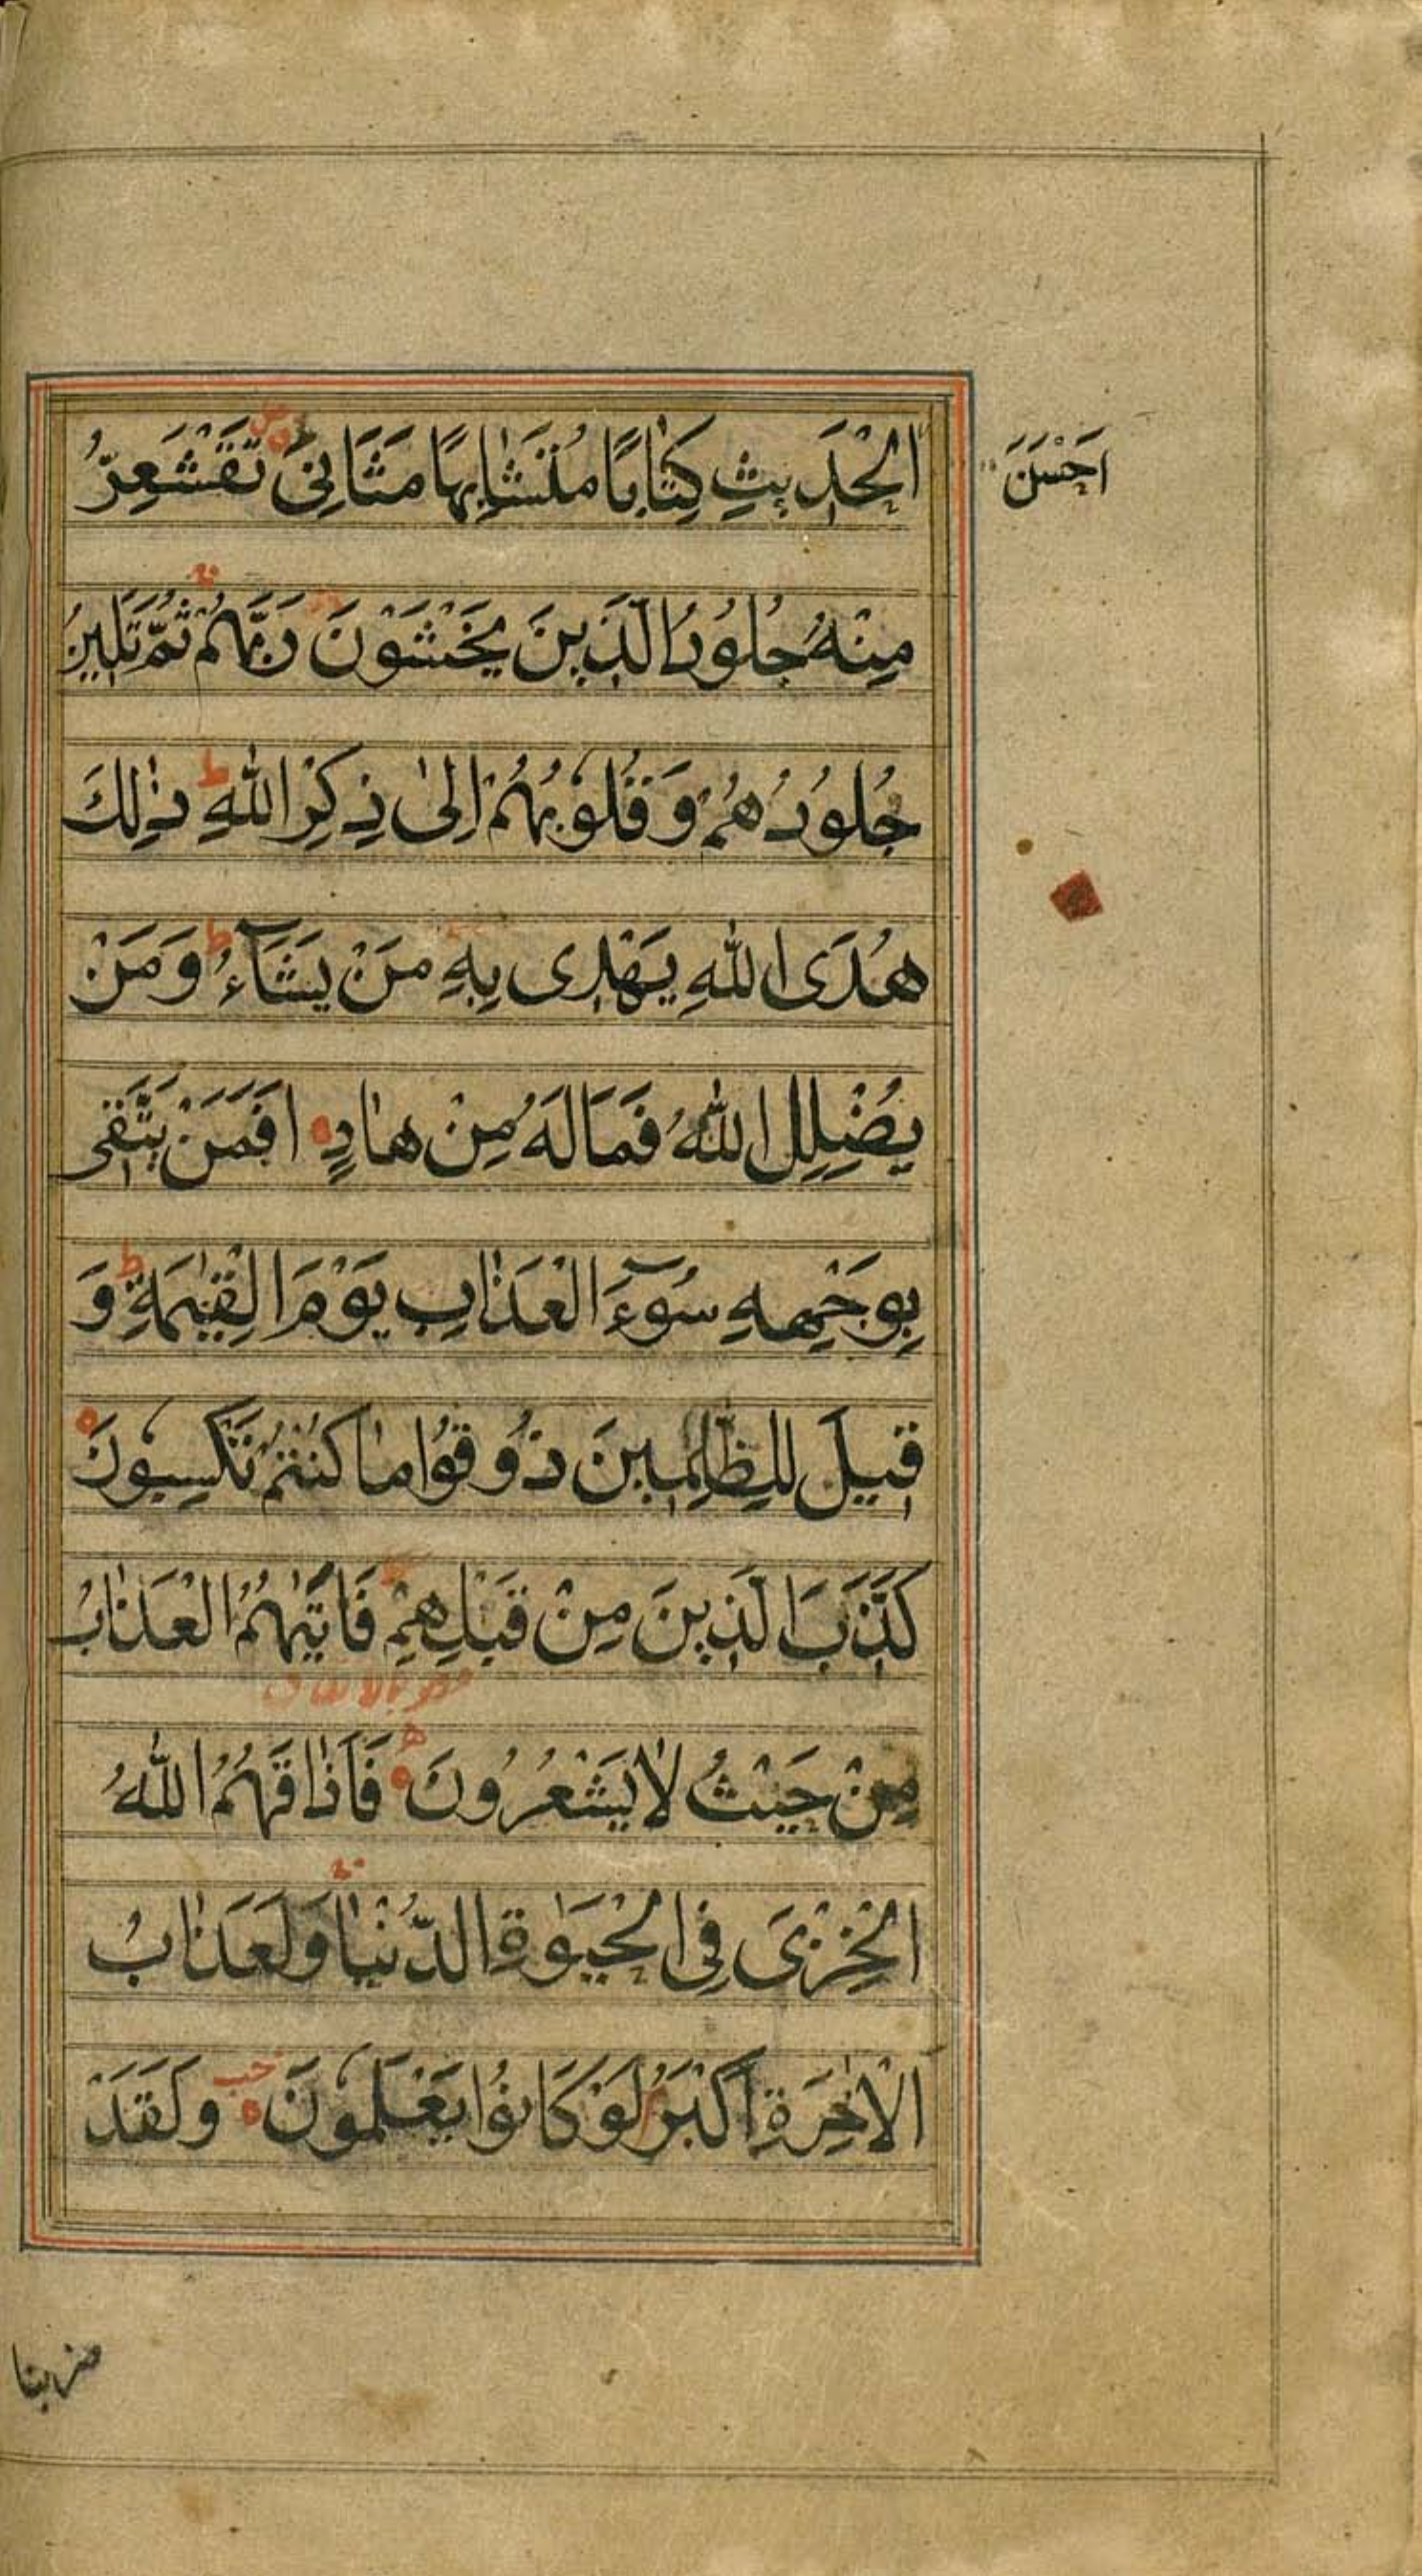 احَْسَنَ
الْحَدِيثِ كِتَابًا مُتَشَابِهًا مَثَانِيَ تَقْشَعِرُّ
مِنْهُ جُلُودُ الَّذِينَ يَخْشَوْنَ رَبَّهُمْ ثُمَّ تَلِينُ
جُلُودُهُمْ وَقُلُوبُهُمْ اِلىٰ ذِكْرِ اللّٰهِ ط ذٰلِكَ
هُدَى اللّٰهِ يَهْدِى بِهِ مَنْ يَشَآءُ ط وَمَنْ
يُضْلِلِ اللّٰهُ فَمَا لَهُ مِنْ هَادٍ ه افَمَنْ يَتَّقِى
بِوَجْهِهِ سُوٓءَ الْعَذَابِ يَوْمَ الْقِيٰمَةِ ط وَ
قِيلَ لِلظّٰلِمِينَ ذُوقُوا مَا كُنْتُمْ تَكْسِبُونَ ه
كَذَّبَ الَّذِينَ مِنْ قَبْلِهِمْ فَاَتٰيهُمُ الْعَذَابُ
مِنْ حَيْثُ لَا يَشْعُرُونَ ه فَاَذَاقَهُمُ اللّٰهُ
الْخِزْىَ فِى الْحَيٰوةِ الدُّنْيَا وَلَعَذَابُ
الْاٰخِرَةِ اَكْبَرُ لَوْ كَانُوا يَعْلَمُونَ ه وَلَقَدْ
ضربنا